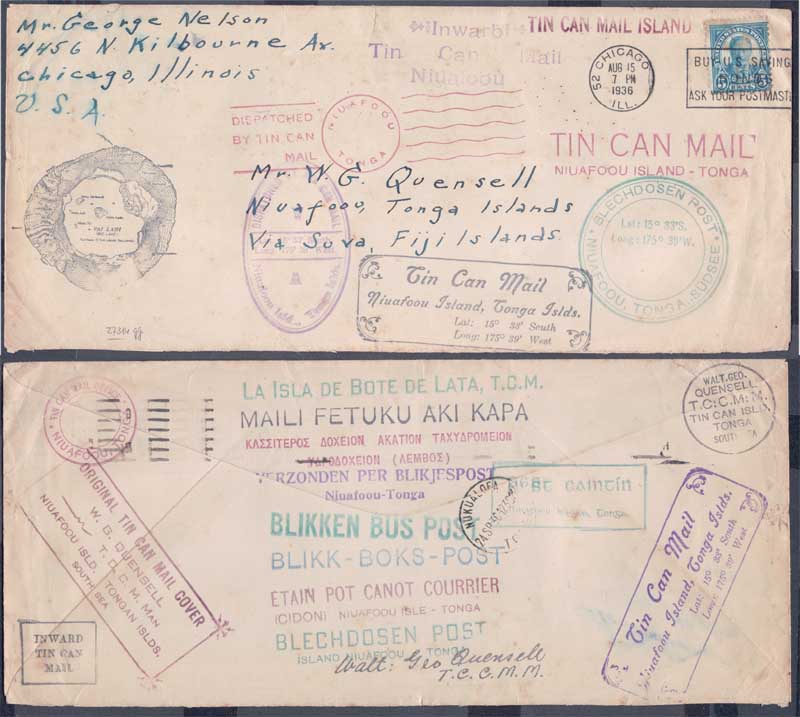 Mr. George Nelson
4456 N. Kilbourne Av.
Chicago, Illinois
U. S. A.
Inward
Tin Can Mail
Niuafoou
TIN CAN MAIL ISLAND
52 CHICAGO
AUG 15
7 PM
1936
ILL.
BUY U.S. SAVING
BONDS
ASK YOUR POSTMAST
5 CENTS
DISPATCHED
BY TIN CAN
MAIL
NIUAFOOU
TONGA
TIN CAN MAIL
NIUAFOOU ISLAND - TONGA
Mr. W. G. Quensell
Niuafoou, Tonga Islands
Via Suva, Fiji Islands.
Niuafoou Isld., Tonga Islds.
BLECHDOSEN POST
Lat: 15° 33'S.
Long: 175° 39'W.
NIUAFOOU, TONGA, SÜDSEE
Tin Can Mail
Niuafoou Island, Tonga Islds.
Lat: 15° 33' South
Long: 175° 39' West
VAI LAHI
27311 gf
TIN CAN MAIL
NIUAFOOU TONGA
LA ISLA DE BOTE DE LATA, T.C.M.
MAILI FETUKU AKI KAPA
ΚΑΣΣΙΤΕΡΟΣ ΔΟΧΕΙΟΝ ΑΚΑΤΙΟΝ ΤΑΧΥΔΡΟΜΕΙΟΝ
ΥΔΡΟΔΟΧΕΙΟΝ (ΛΕΜΒΟΣ)
VERZONDEN PER BLIKJESPOST
Niuafoou-Tonga
BLIKKEN BUS POST
BLIKK-BOKS-POST
ETAIN POT CANOT COURRIER
(CIDON) NIUAFOOU ISLE - TONGA
BLECHDOSEN POST
ISLAND NIUAFOOU TONGA
Walt. Geo Quensell
T.C.C.M.M.
WALT. GEO.
QUENSELL
T.C.C.M.M.
TIN CAN ISLD.
TONGA
SOUTH SEA
ORIGINAL TIN CAN MAIL COVER
W. G. QUENSELL
T. C. C. M. MAN
NIUAFOOU ISLD. TONGAN ISLDS.
SOUTH SEA
NUKUALOFA
INWARD
TIN CAN
MAIL
Tin Can Mail
Niuafoou Island, Tonga Islds.
Lat: 15° 33' South
Long: 175° 39' West